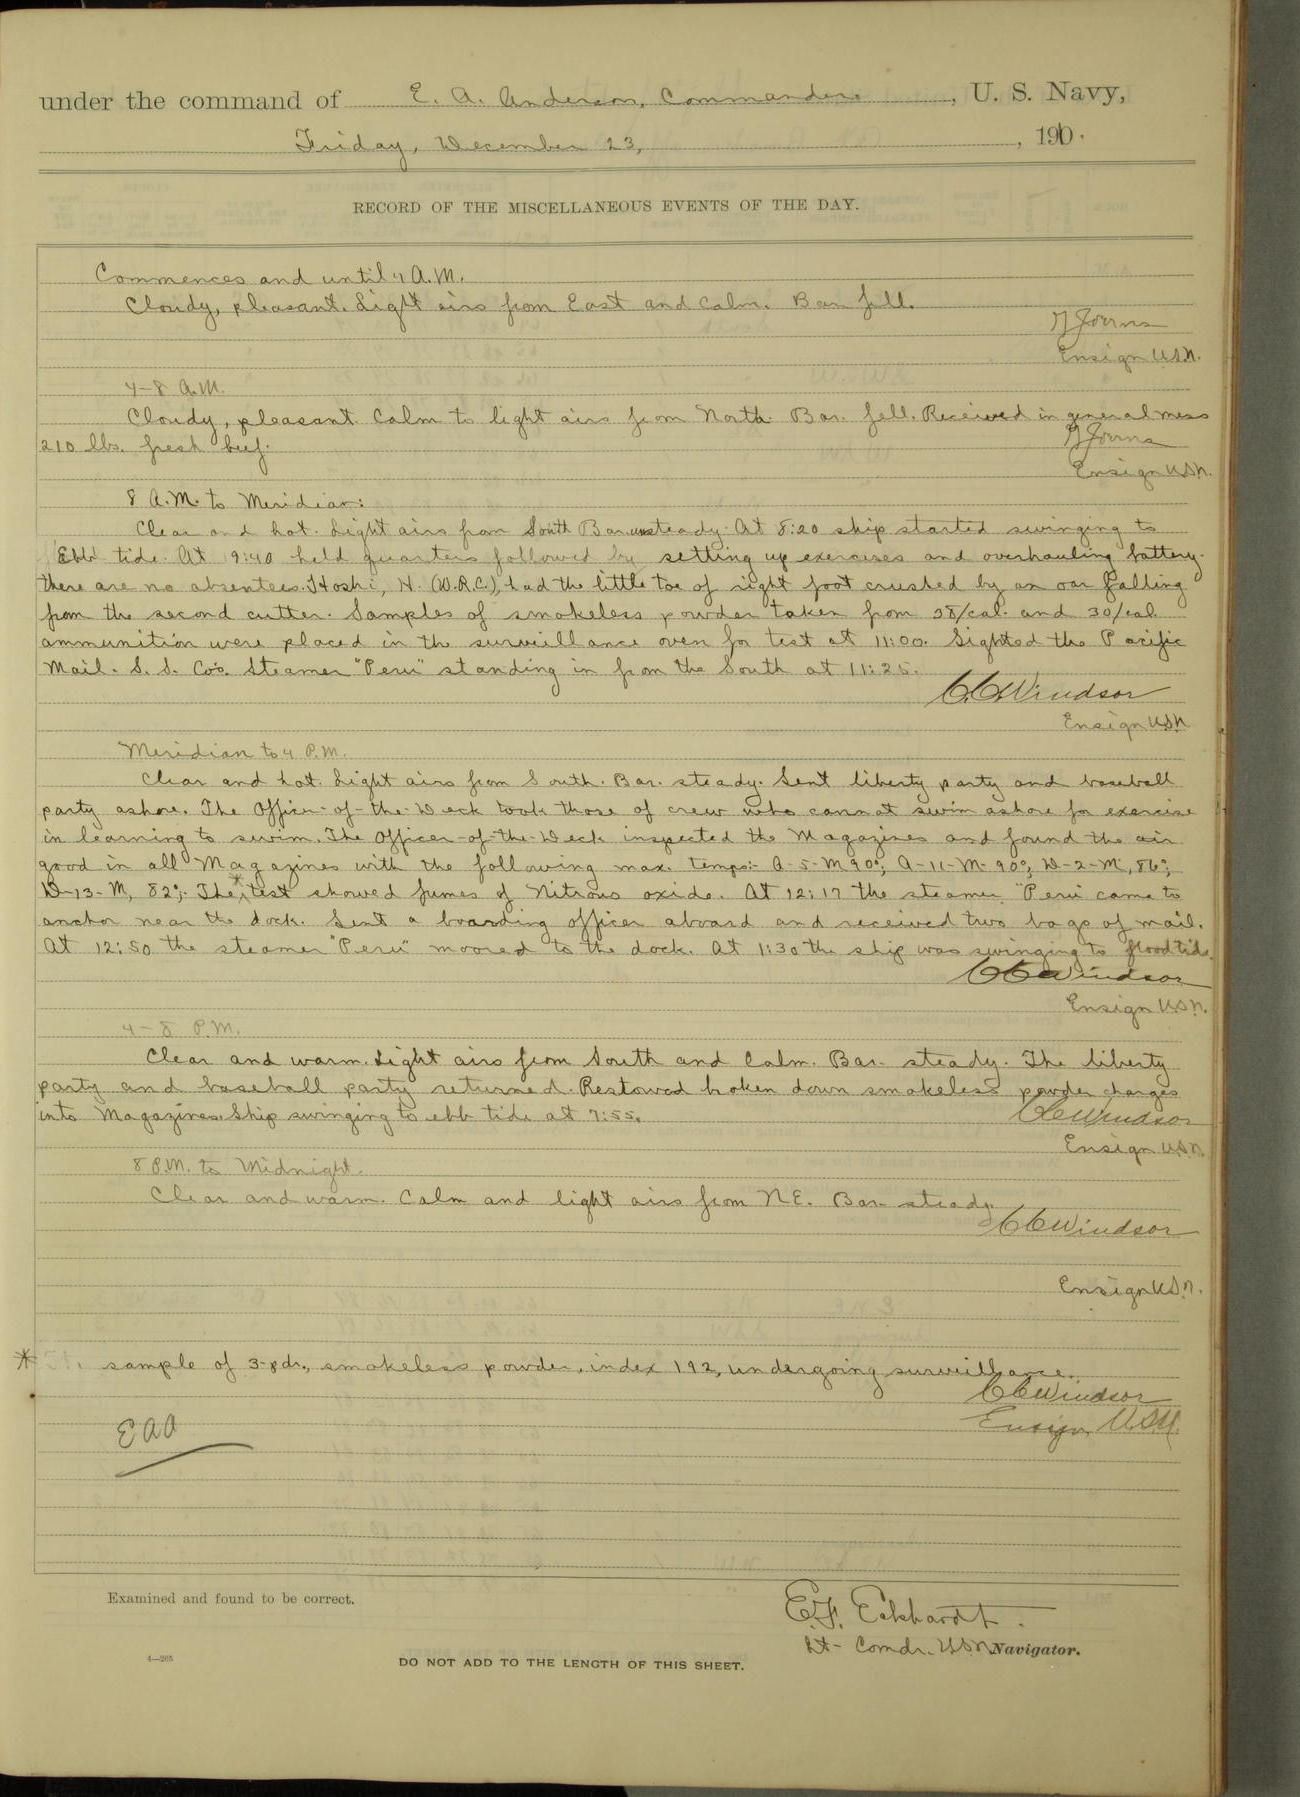 under the command of E. A. Anderson, Commander, U. S. Navy,
Friday, December 23, , 1910.
RECORD OF THE MISCELLANEOUS EVENTS OF THE DAY.
Commences and until 4 A.M.
Cloudy, pleasant. Light airs from East and Calm. Bar fell.
Ensign U.S.N.
4-8 A.M.
Cloudy, pleasant. Calm to light airs from North. Bar. fell. Received in general mess
210 lbs. fresh beef.
Ensign U.S.N.
8 A.M. to Meridian:
Clear and hot. Light airs from South Bar. unsteady. At 8:20 ship started swinging to
Ebb tide. At 9:40 held quarters followed by setting up exercises and overhauling battery.
there are no absentees. Hoshi, H. (W.R.C.), had the little toe of right foot crushed by an oar falling
from the second cutter. Samples of smokeless powder taken from 38/cal. and 30/cal.
ammunition were placed in the surveillance oven for test at 11:00. Sighted the Pacific
Mail. S. S. Co's. Steamer "Peru" standing in from the South at 11:25.
C.C. Windsor
Ensign U.S.N
Meridian to 4 P.M.
Clear and hot. Light airs from South. Bar. steady. Sent liberty party and baseball
party ashore. The Officer-of-the-Deck took those of crew who cannot swim ashore for exercise
in learning to swim. The Officer-of-the-Deck inspected the Magazines and found the air
good in all Magazines with the following max. temps:- A-5-M 90°; A-11-M- 90°; D-2-M, 86°;
D-13-M, 82°;. The * test showed fumes of Nitrous oxide. At 12:17 the steamer "Peru" came to
anchor near the dock. Sent a boarding officer aboard and received two bags of mail.
At 12:50 the steamer "Peru" moored to the dock. At 1:30 the ship was swinging to flood tide.
C C Windsor
Ensign U.S.N.
4-8 P.M.
Clear and warm. Light airs from South and Calm. Bar. steady. The liberty
party and baseball party returned. Restowed broken down smokeless powder charges
into Magazines. Ship swinging to ebb tide at 7:55.
C C Windsor
Ensign U.S.N.
8 P.M. to Midnight.
Clear and warm. Calm and light airs from N.E. Bar. steady.
C C Windsor
Ensign U.S.N.
* sample of 3-pdr., smokeless powder, index 192, undergoing surveillance.
C C Windsor
Ensign U.S.N.
E A A
Examined and found to be correct.
E.F. Eckhardt.
Lt-Comdr. U.S.N. Navigator.
4—265
DO NOT ADD TO THE LENGTH OF THIS SHEET.